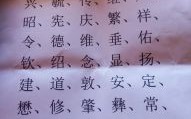 兴、毓、传、继、广、
昭、宪、庆、繁、祥、
令、德、维、垂、佑、
钦、绍、念、显、扬、
建、道、敦、安、定、
懋、修、肇、彝、常、